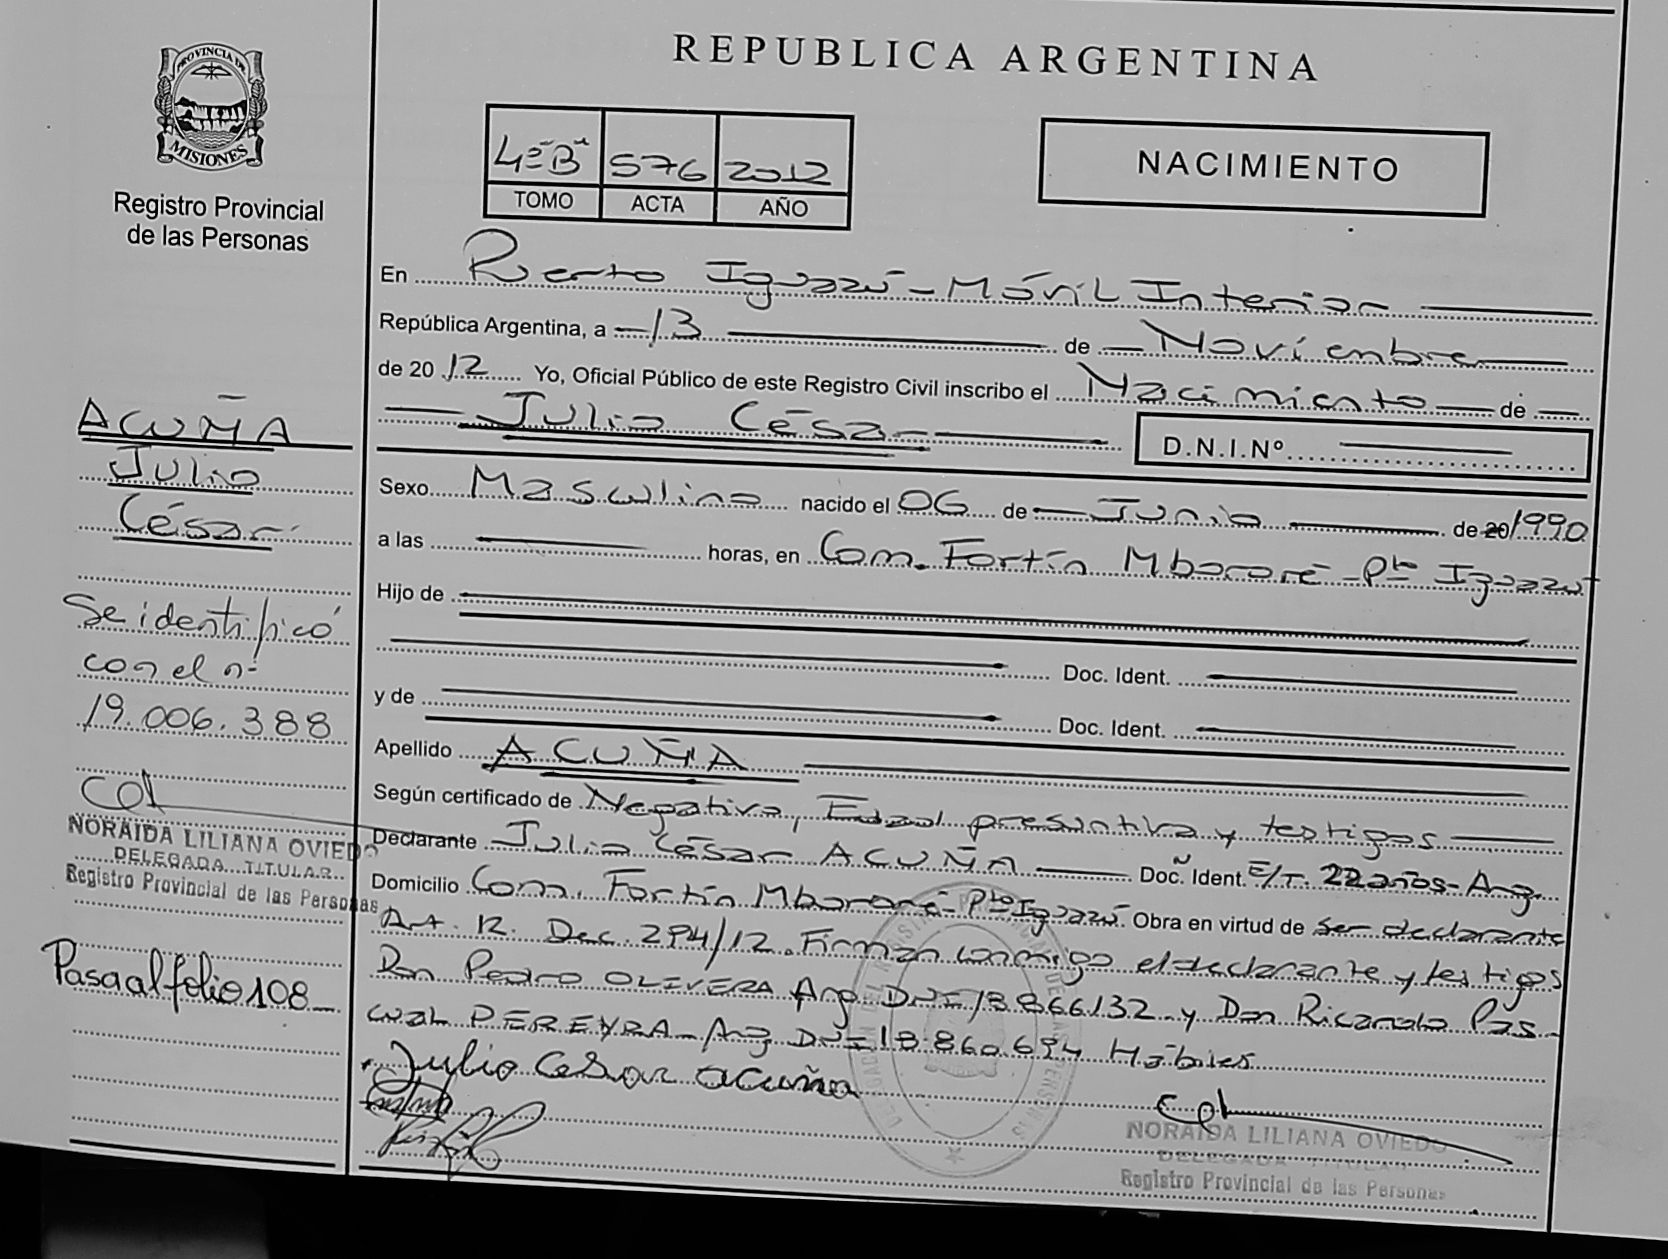 PROVINCIA DE
MISIONES
Registro Provincial
de las Personas
REPUBLICA ARGENTINA
4º"B" 576 2012
TOMO ACTA AÑO
NACIMIENTO
En Puerto Iguazú - Móvil Interior
República Argentina, a 13 de Noviembre
de 2012 Yo, Oficial Público de este Registro Civil inscribo el Nacimiento de
Julio César D.N.I.Nº
Sexo Masculino nacido el 06 de Junio de 20 1990
a las horas, en Com. Fortín Mbororé - Pto Iguazú
Hijo de
Doc. Ident.
y de Doc. Ident.
Apellido ACUÑA
Según certificado de Negativa, Edad presuntiva y testigos
Declarante Julio César ACUÑA Doc. Ident. E/T. 22 años - Arg.
Domicilio Com. Fortín Mbororé - Pto Iguazú. Obra en virtud de ser declarante
Art. 12. Dec. 294/12. Firman conmigo el declarante y testigos
Don Pedro OLIVERA Arg. DNI 18.866.132 y Don Ricardo Pas
cual PEREYRA - Arg DNI 18.860.694 Hábiles
Julio Cesar acuña
NORAIDA LILIANA OVIEDO
DELEGADA TITULAR
Registro Provincial de las Personas
ACUÑA
Julio
César
Se identificó
con el nº
19.006.388
NORAIDA LILIANA OVIEDO
DELEGADA TITULAR
Registro Provincial de las Personas
Pasa al folio 108